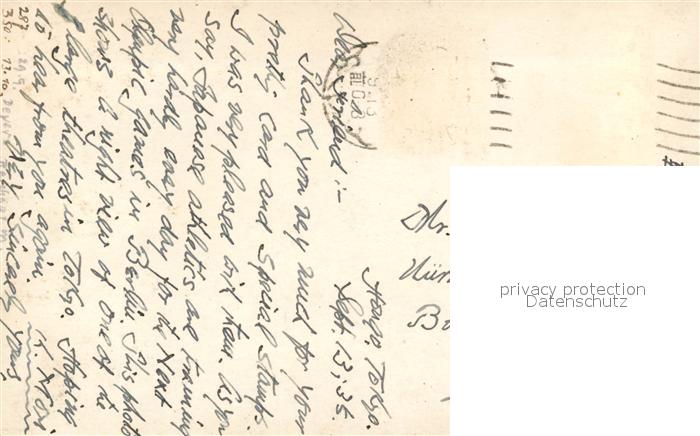 Hongo. Tokyo.
Sept. 13, 35.
Dear friend :-
Thank you very much for your
pretty card and special stamps.
I was very pleased with them. As you
say, Japanese athletics are training
very hardly every day for the Next
Olympic games in Berlin. This photo
shows a night view of one of the
large theatres in Tokyo. Hoping
to hear from you again.
Very Sincerely yours,
Mr.
Nürn
Bo
privacy protection
Datenschutz
287
350.